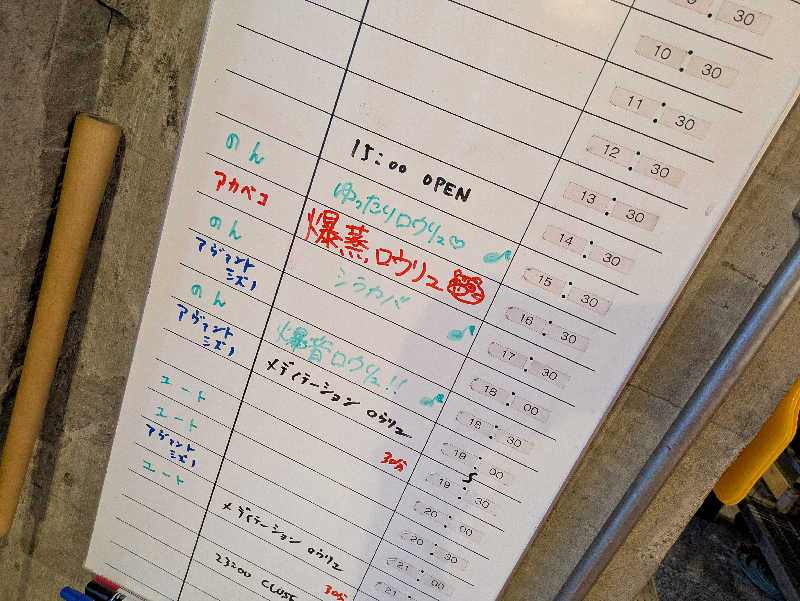 30
10:30
11:30
12:30
13:30
14:30
15:00 OPEN
のん ゆったりロウリュ♡ 15:30
アカベコ 爆蒸ロウリュ 16:30
のん シラカバ 17:30
アヴァント
ミズノ
18:00
のん 爆音ロウリュ!! 18:30
アヴァント
ミズノ
メディテーション ロウリュ
30分
19:30
ユート 20:00
ユート 20:30
アヴァント
ミズノ
21:00
ユート
メディテーション ロウリュ
30分
23:00 CLOSE